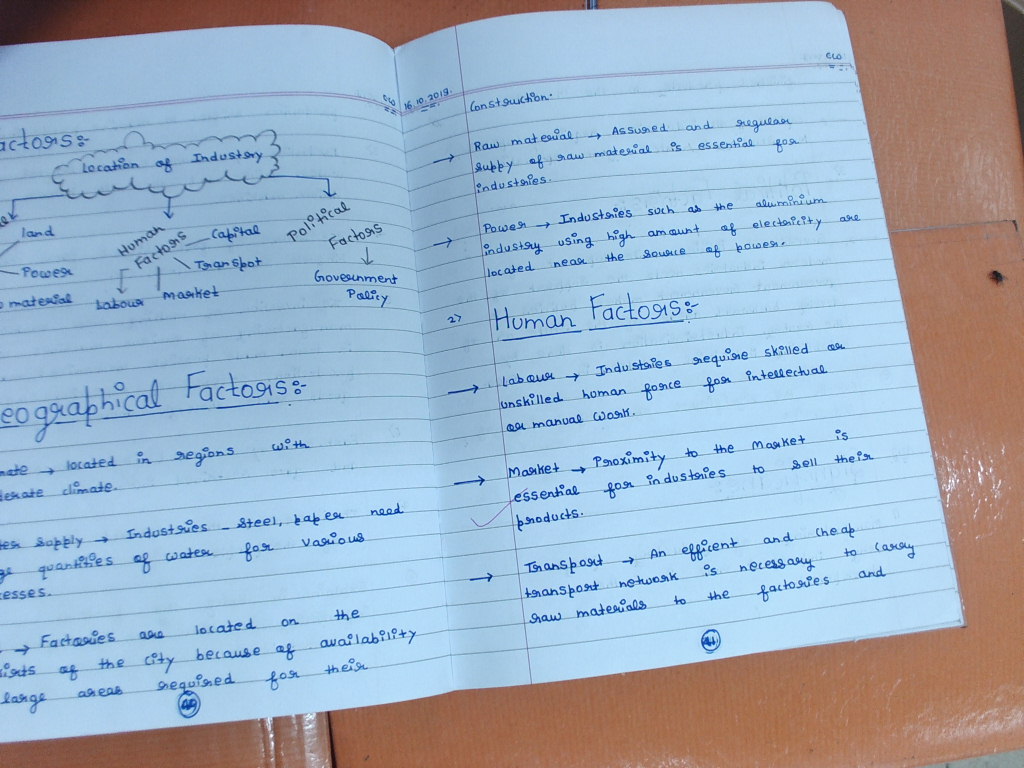 CW
actors:-
Location of Industry
land
Power
material
Human
Factors
Capital
Transpot
Labour
Market
Political
Factors
Government
Policy
eographical Factors:-
mate → located in regions with
derate climate.
ter supply → Industries - steel, paper need
ge quantities of water for various
esses.
→ Factories are located on the
irts of the city because of availability
large areas required for their
16.10.2019.
CW
Construction.
→ Raw material → Assured and regular
supply of raw material is essential for
industries.
→ Power → Industries such as the aluminium
industry using high amount of electricity are
located near the source of power.
2> Human Factors:-
→ Labour → Industries require skilled or
unskilled human force for intellectual
or manual work.
→ Market → Proximity to the Market is
essential for industries to sell their
products.
→ Transport → An efficent and cheap
transport network is necessary to carry
raw materials to the factories and